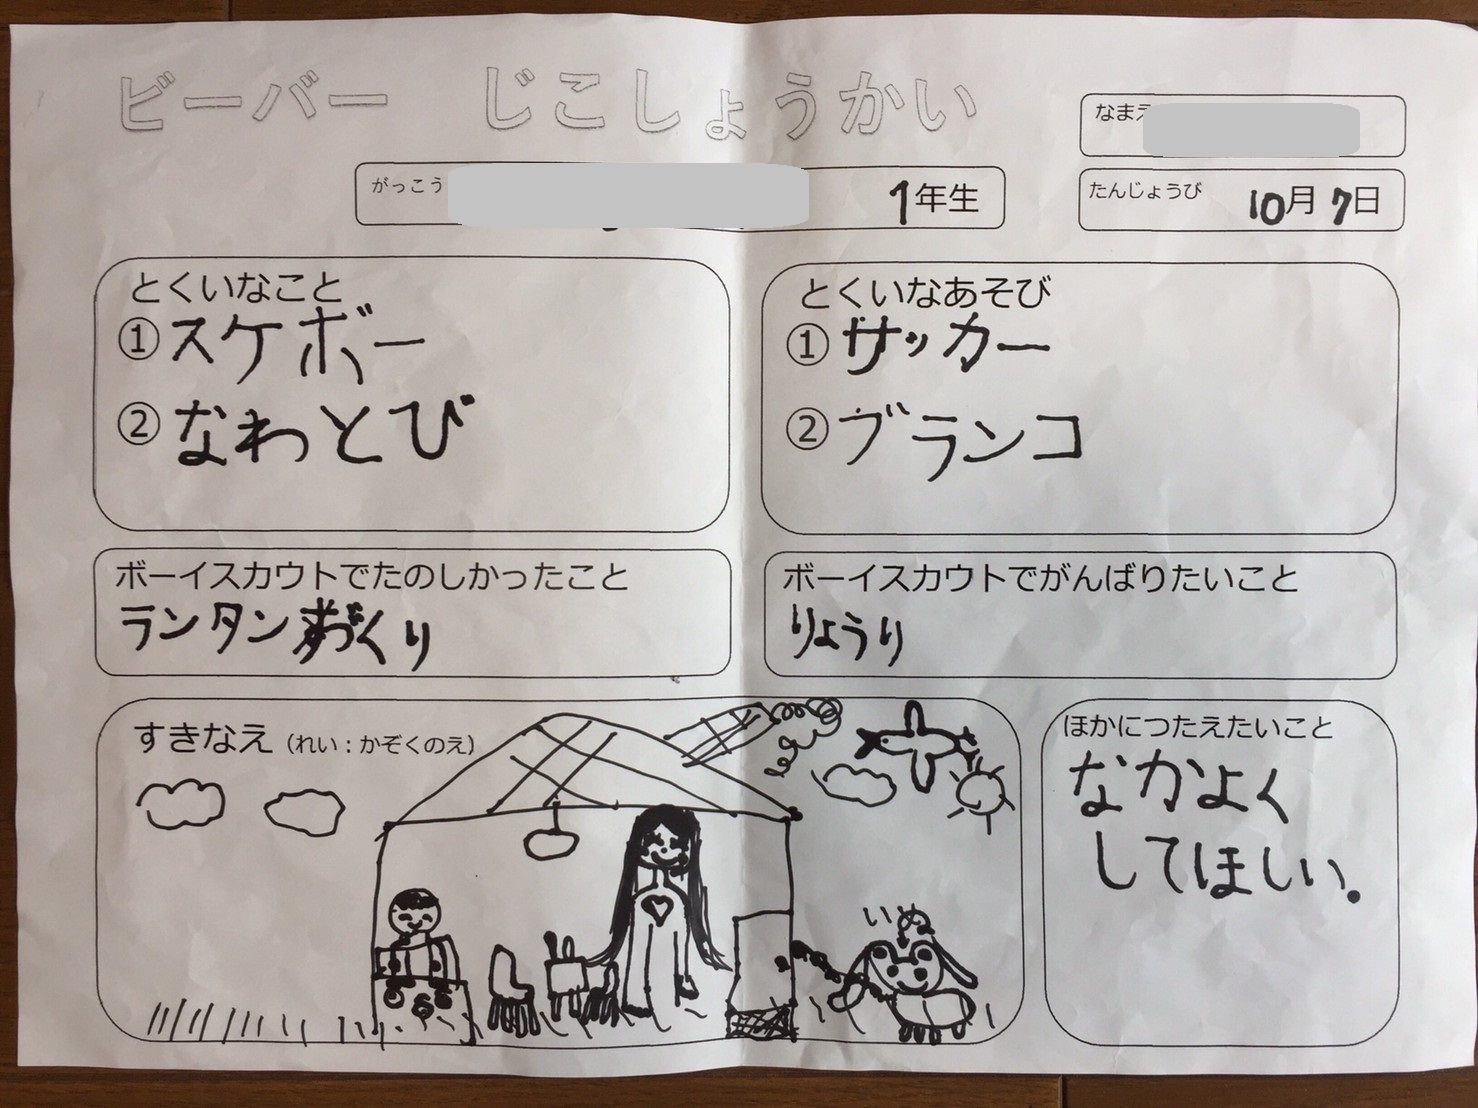 ビーバー　じこしょうかい
なまえ
がっこう 1年生
たんじょうび 10月 7日
とくいなこと
① スケボー
② なわとび
とくいなあそび
① サッカー
② ブランコ
ボーイスカウトでたのしかったこと
ランタンづくり
ボーイスカウトでがんばりたいこと
りょうり
すきなえ（れい：かぞくのえ）
いぬ
ほかにつたえたいこと
なかよく
してほしい。